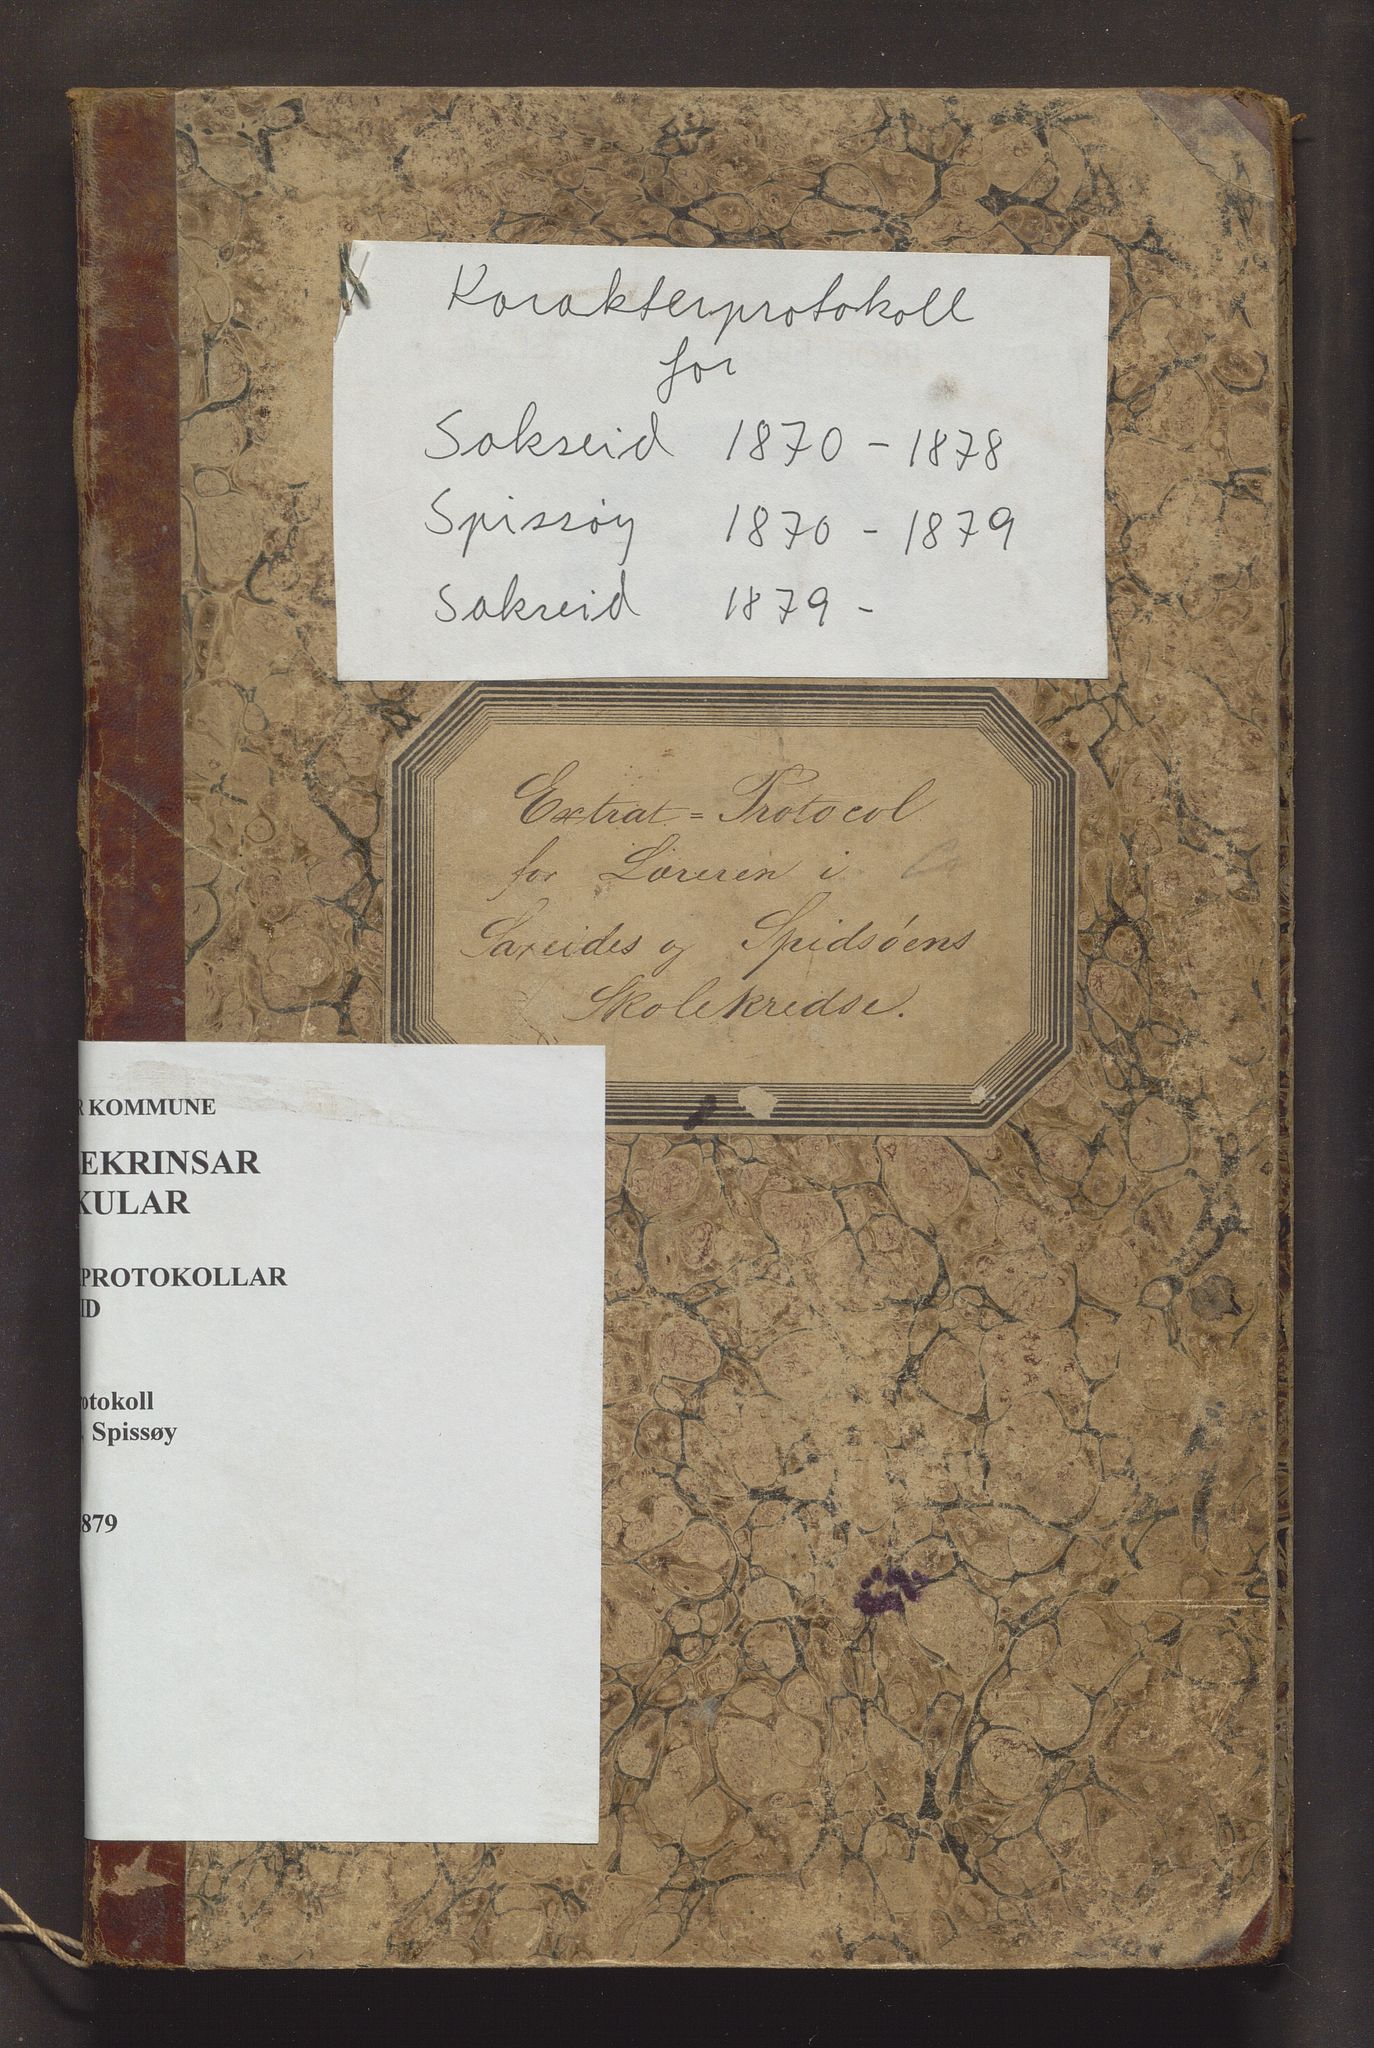 Karakterprotokoll
for
Sakseid 1870 - 1878
Spissøy 1870 - 1879
Sakseid 1879 -
Extrat=Protocol
for Læreren i
Saxeides og Spidsöens
Skolekredse.
R KOMMUNE
EKRINSAR
KULAR
PROTOKOLLAR
ID
rotokoll
, Spissøy
879